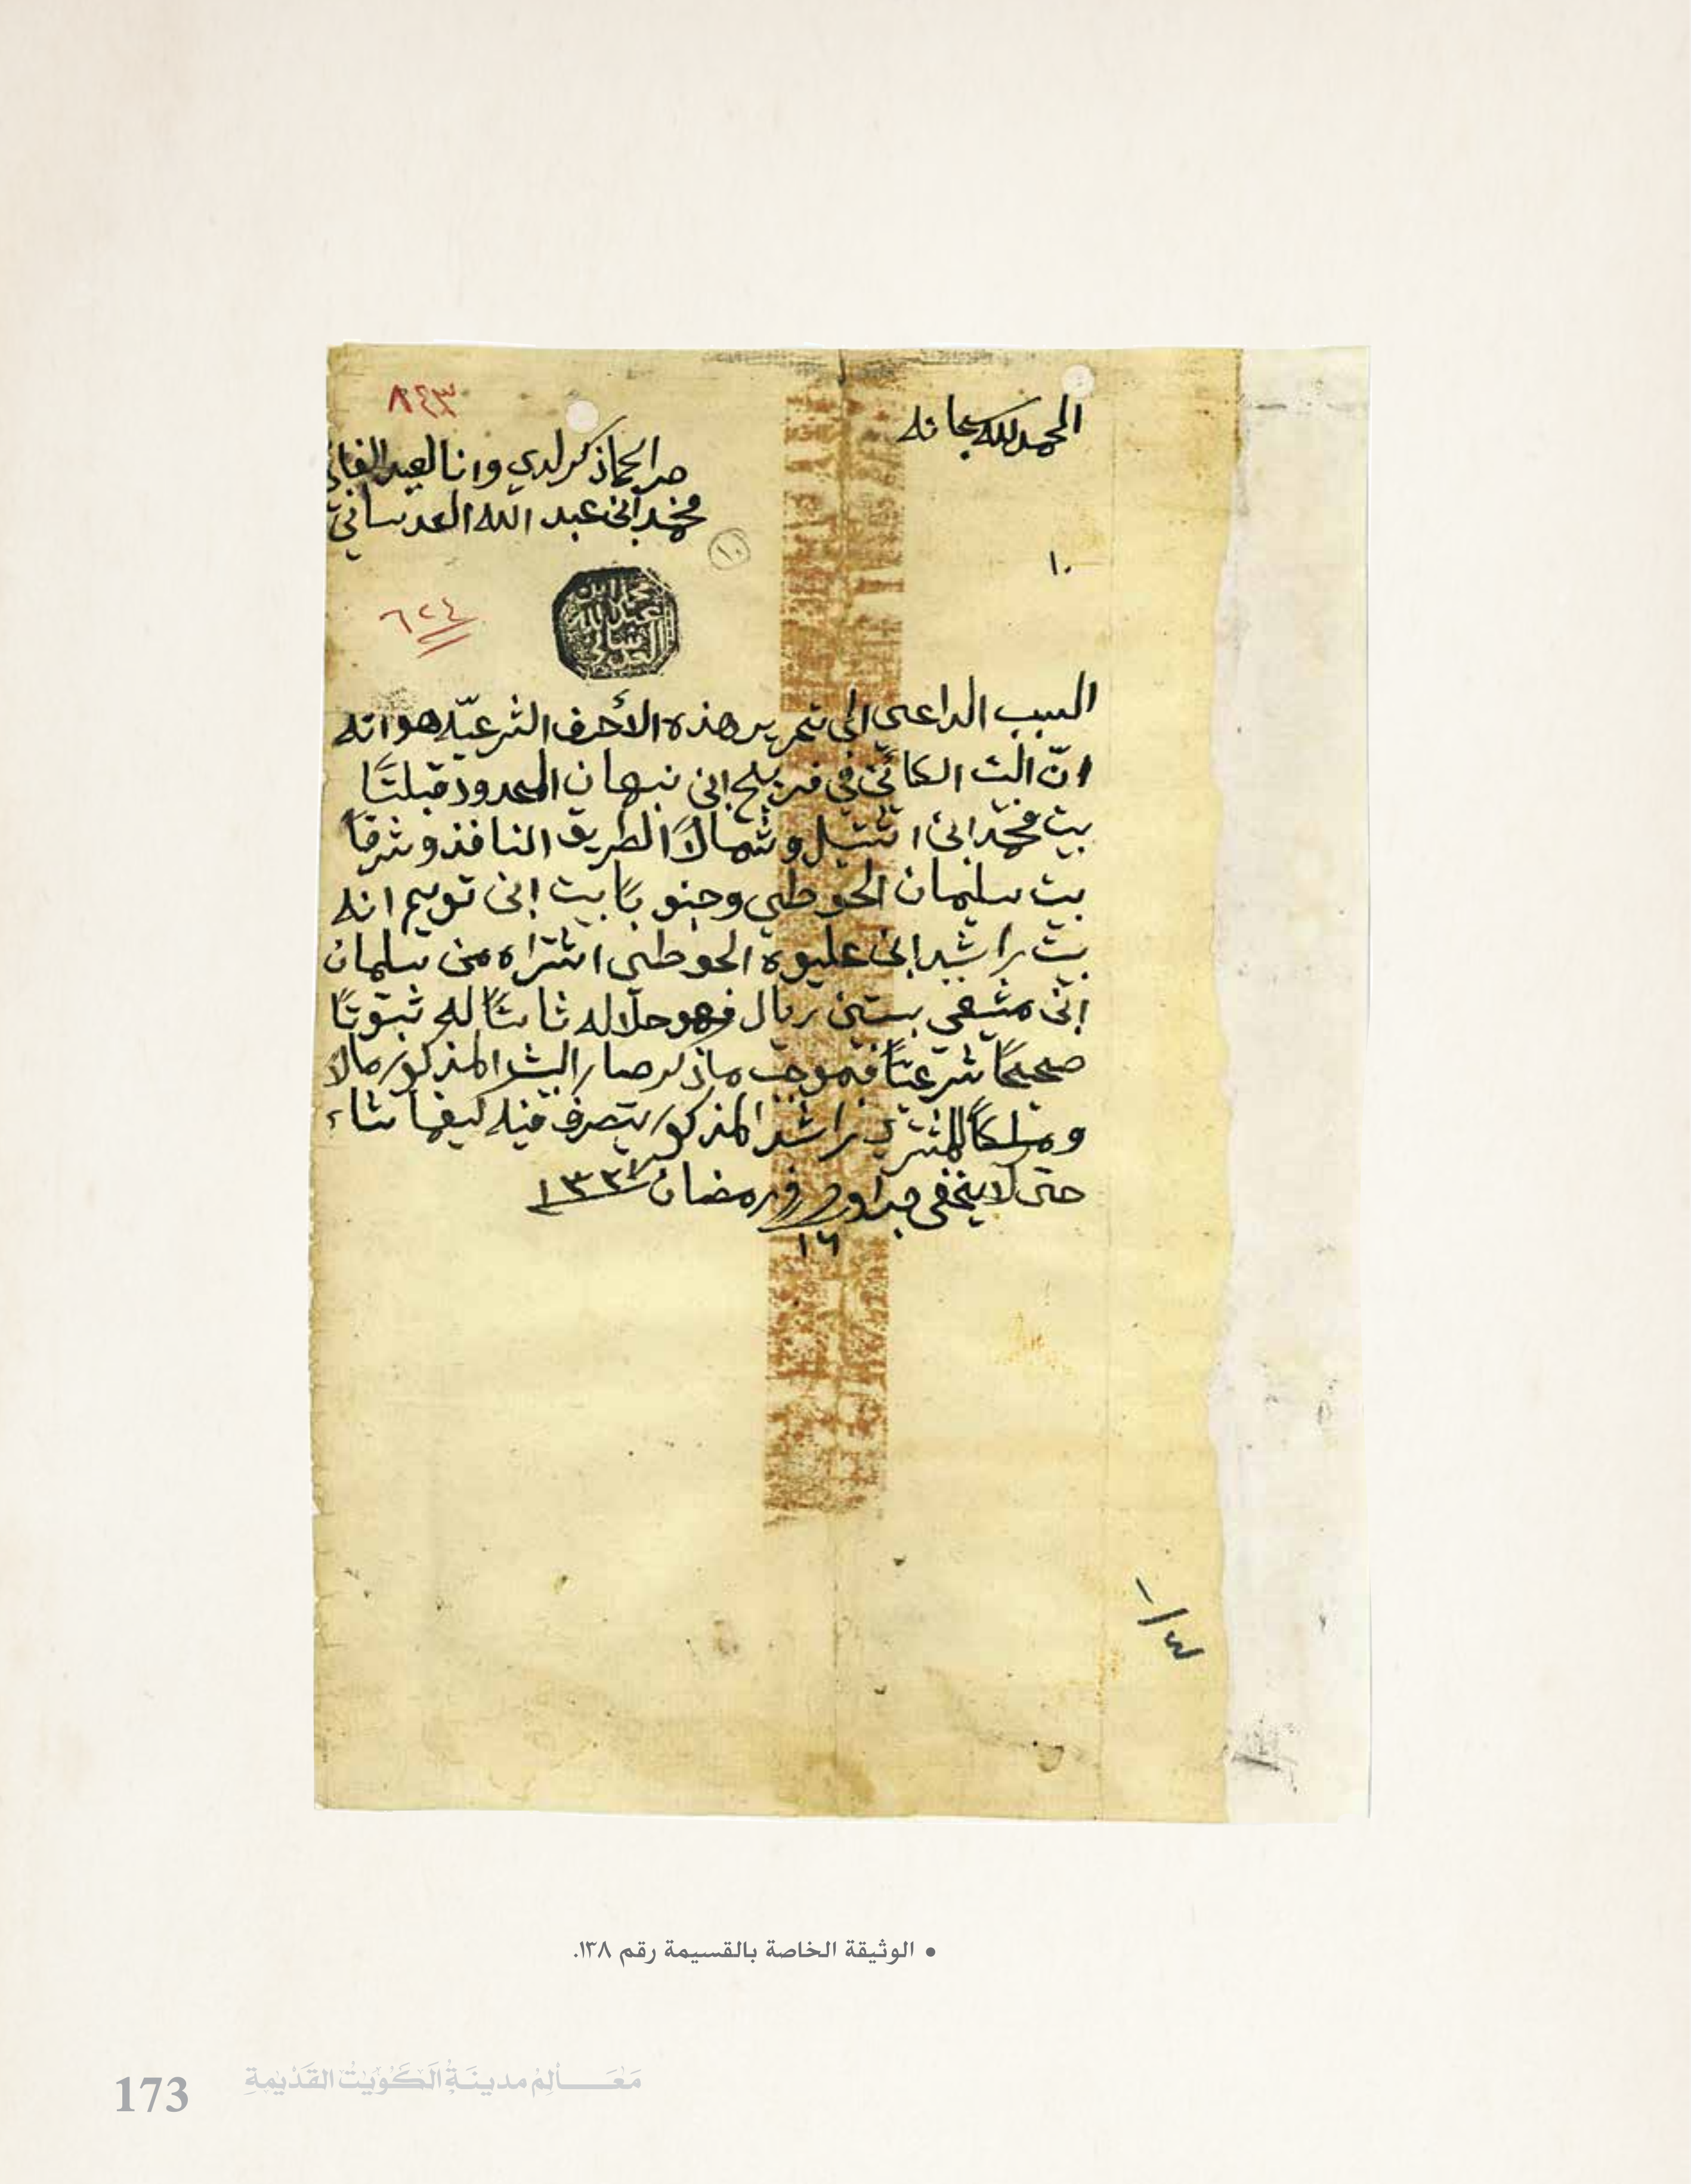 الحمد لله سبحانه
٨٤٣
صر الحما ذكر لدي وانا العبد الفاني
محمد ابن عبد الله العدساني
١٠
١٠
محمد ابن
عبد الله
العدساني
٦٢٤
السبب الداعي الى تحرير هذه الأحرف الشرعيّه هو انه
انّ البيت الكائن في فريج ابن نبهان المحدود قبلتًا
بيت محمد ابن اثتيل وشمالاً الطريق النافذ وشرقاً
بيت سليمان الحوطي وجنوبًا بيت ابن تويم انه
بيت راشد ابن عليوه الحوطي اشتراه من سلمان
ابن مشعي بستين ريال فهو حلاله ثابتًا له ثبوتًا
صحيحًا شرعيًّا فبموجب ما ذكر صار البيت المذكور مالاً
وملكًا للمشتري راشد المذكور يتصرف فيه كيفما شاء
حتى لا يخفى جرا وحرر في رمضان ١٣٣٧
١٦
١/٤
• الوثيقة الخاصة بالقسيمة رقم ١٣٨.
173 مَعَالِم مدينَةِ الكُوَيْتْ القَدْيْمةِ